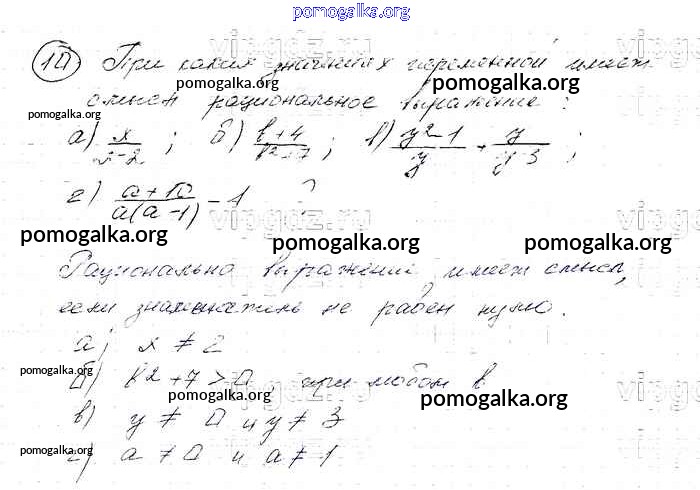 pomogalka.org
10) При каких значениях переменной имеет
pomogalka.org pomogalka.org
смысл рациональное выражение:
pomogalka.org
а) x/(x-2); б) (b+4)/(b²+7); в) (y²-1)/y + y/(y-3);
г) (a+10)/(a(a-1)) - 1 ?
vipgdz.ru
pomogalka.org pomogalka.org pomogalka.org
Рационально выражение имеет смысл,
если знаменатель не равен нулю.
а) x ≠ 2
pomogalka.org
б) b²+7>0, при любом b
pomogalka.org pomogalka.org
в) y ≠ 0 и y ≠ 3
pomogalka.org
г) a ≠ 0 и a ≠ 1